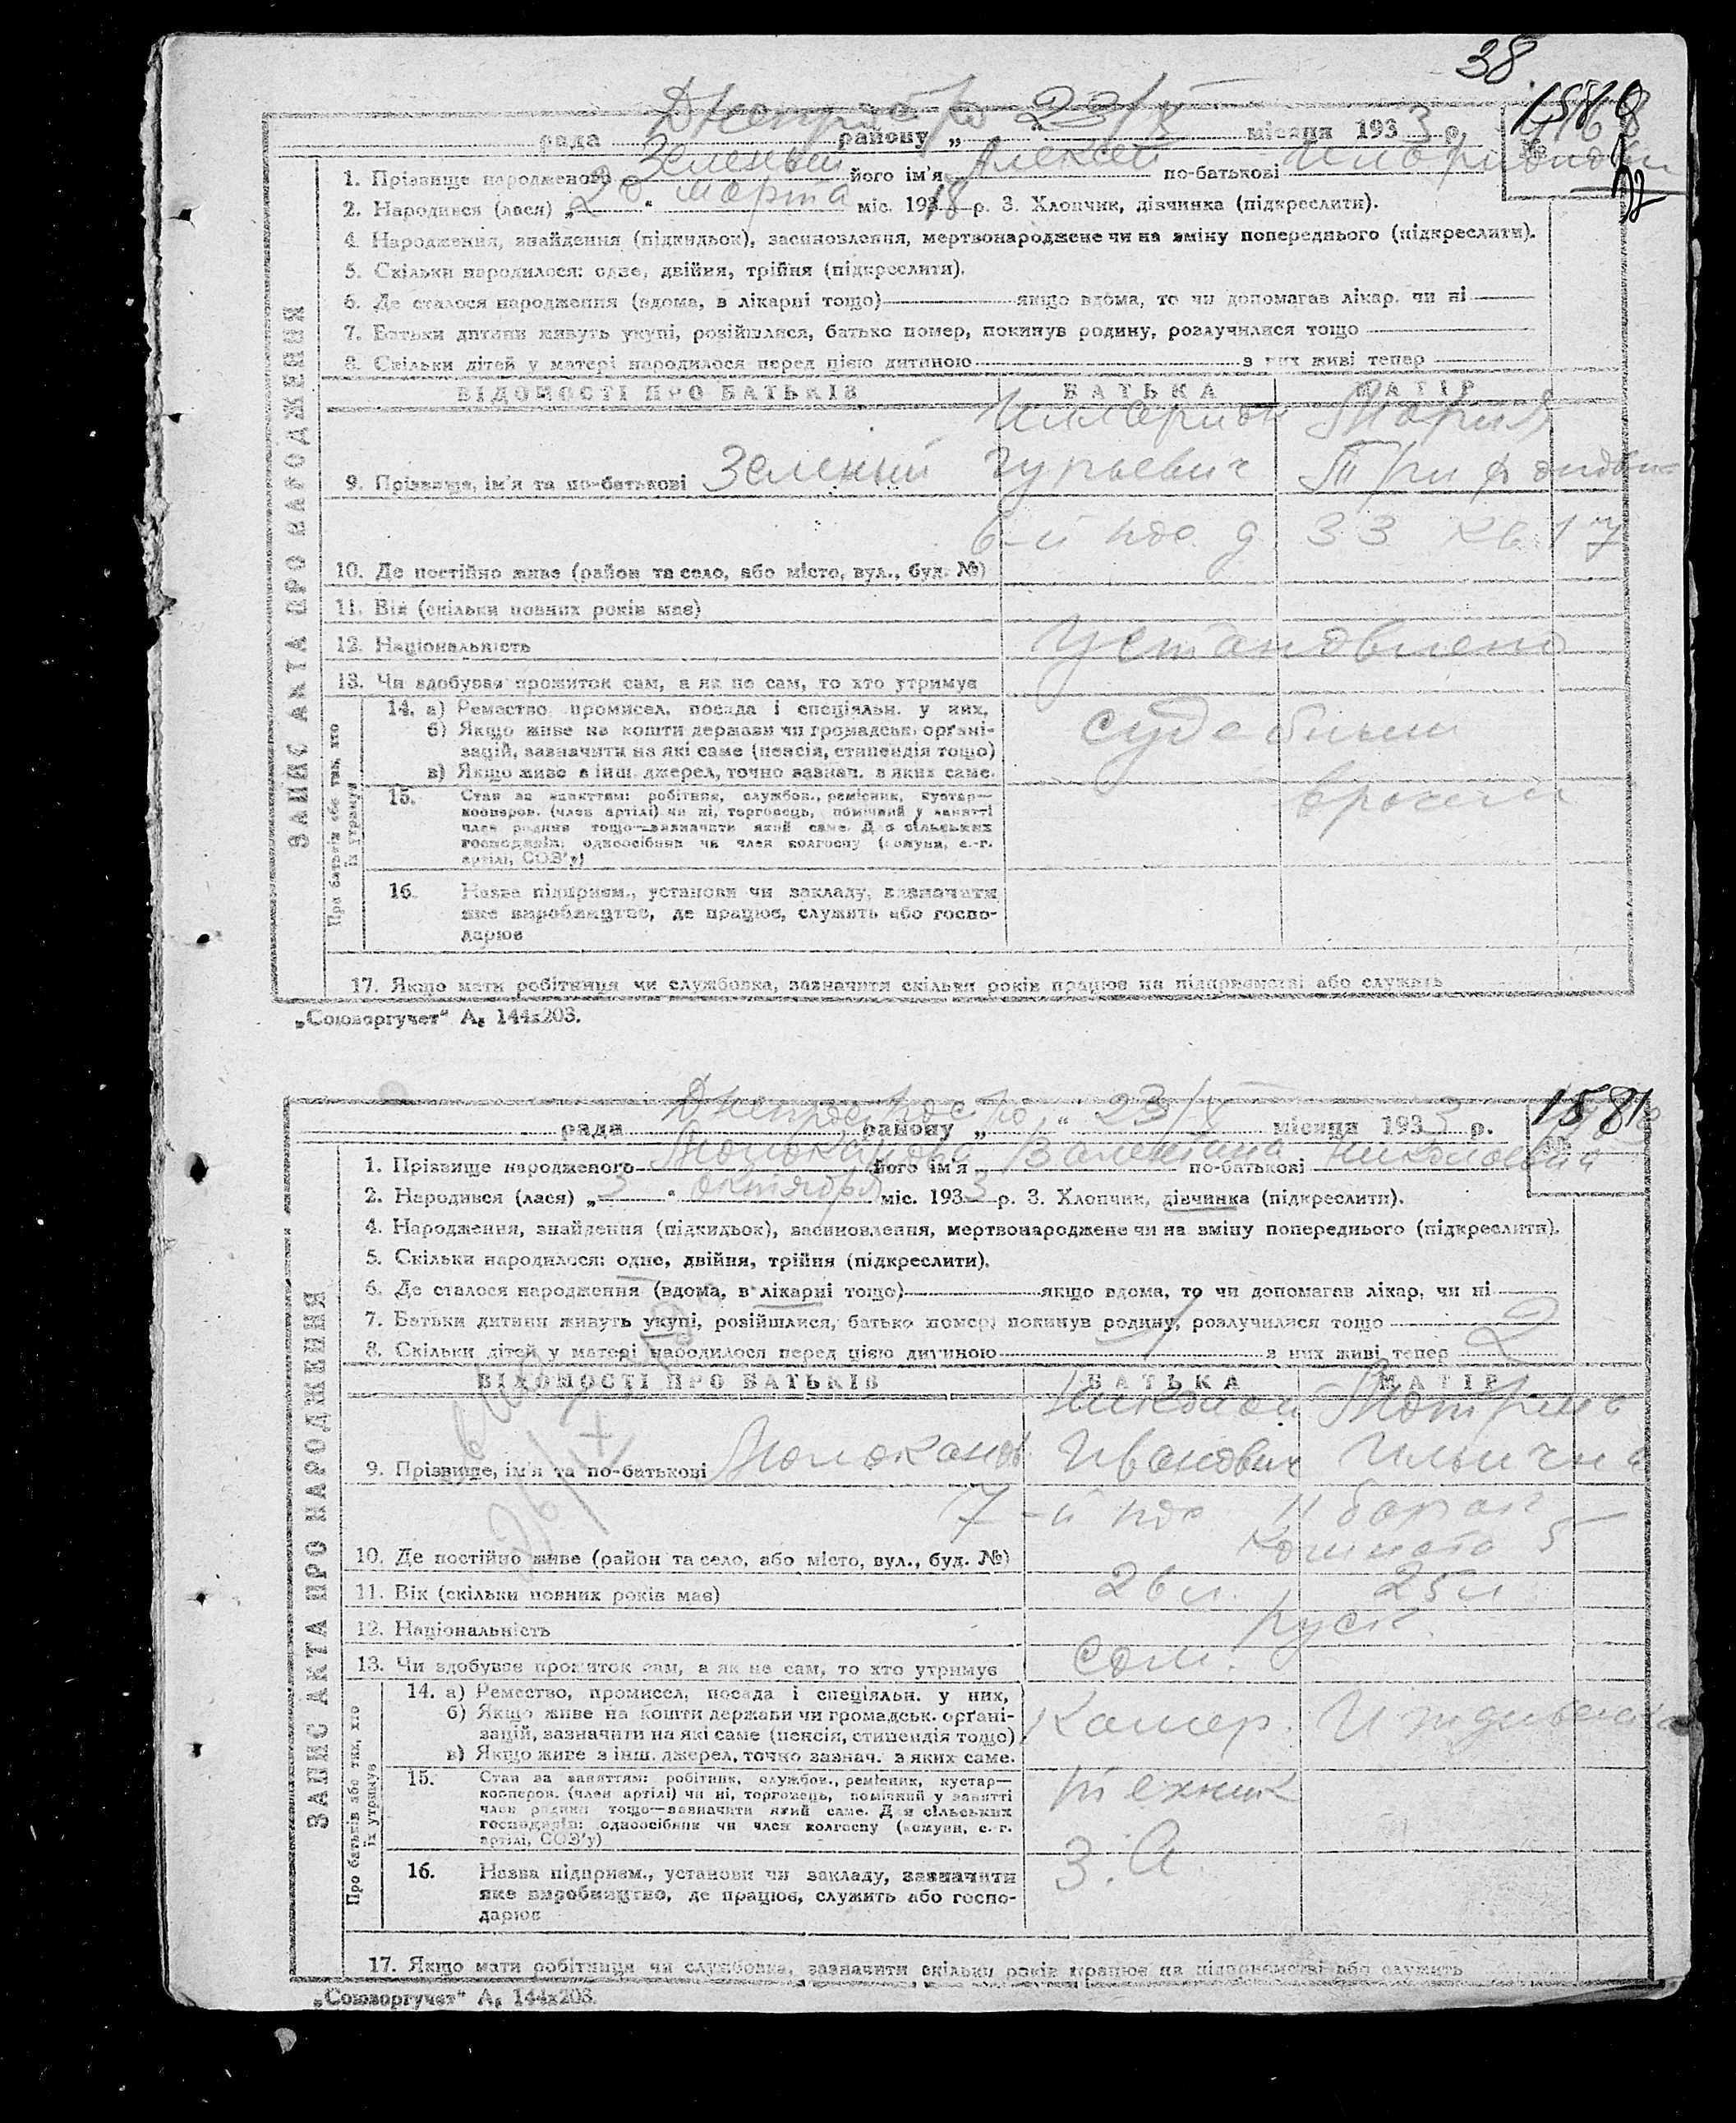 38.
рада Днепрос району „ 23/X “ місяця 1933 р.
1580
№
1. Прізвище народженого Зеленый його ім'я Алексей по-батькові
2. Народився (лася) „20“ марта міс. 1918 р. 3. Хлопчик, дівчинка (підкреслити).
4. Народження, знайдення (підкидьок), засиновлення, мертвонароджене чи на зміну попереднього (підкреслити).
5. Скільки народилося: одне, двійня, трійня (підкреслити).
6. Де сталося народження (вдома, в лікарні тощо) якщо вдома, то чи допомагав лікар. чи ні
7. Батьки дитини живуть укупі, розійшлися, батько помер, покинув родину, розлучилися тощо
8. Скільки дітей у матері народилося перед цією дитиною з них живі тепер
ЗАПИС АКТА ПРО НАРОДЖЕННЯ
ВІДОМОСТІ ПРО БАТЬКІВ БАТЬКА МАТІР
Илларион Мария
9. Прізвище, ім'я та по-батькові Зеленый Гурьевич
6-й пос. д. 33 кв. 17
10. Де постійно живе (район та село, або місто, вул., буд. №)
11. Вік (скільки повних років має)
12. Національність Установлено
13. Чи здобував прожиток сам, а як не сам, то хто утримує
Про батьків або тих, хто їх утримує
14. а) Ремество, промисел, посада і спеціяльн. у них,
б) Якщо живе на кошти держави чи громадськ. органі-
зацій, зазначити на які саме (пенсія, стипендія тощо)
в) Якщо живе з інш. джерел, точно зазнач. з яких саме.
судебным
врачом
15. Стан за заняттям: робітник, службов., ремісник, кустар—
кооперов. (член артілі) чи ні, торговець, помічний у занятті
член родини тощо—зазначити який саме. Для сільських
господарів: одноосібник чи член колгоспу (комуни, с.-г.
артілі, СОЗ'у)
16. Назва підприєм., установи чи закладу, зазначити
яке виробництво, де працює, служить або госпо-
дарює
17. Якщо мати робітниця чи службовка, зазначити скільки років працює на підприємстві або служить
„Союзоргучет“ А₅ 144х203.
рада Днепрос району „ 23/X “ місяця 1933 р.
1581
№
1. Прізвище народженого Молоканова його ім'я Валентина по-батькові Николаевна
2. Народився (лася) „3“ октября міс. 1933 р. 3. Хлопчик, дівчинка (підкреслити).
4. Народження, знайдення (підкидьок), засиновлення, мертвонароджене чи на зміну попереднього (підкреслити).
5. Скільки народилося: одне, двійня, трійня (підкреслити).
6. Де сталося народження (вдома, в лікарні тощо) якщо вдома, то чи допомагав лікар, чи ні
7. Батьки дитини живуть укупі, розійшлися, батько помер, покинув родину, розлучилися тощо
8. Скільки дітей у матері народилося перед цією дитиною 1 з них живі тепер 2
ЗАПИС АКТА ПРО НАРОДЖЕННЯ
ВІДОМОСТІ ПРО БАТЬКІВ БАТЬКА МАТІР
Николай Мотрина
9. Прізвище, ім'я та по-батькові Молоканов Иванович Ильична
26/X
7-й пос. 11 барак
комната 5
10. Де постійно живе (район та село, або місто, вул., буд. №)
11. Вік (скільки повних років має) 26 л. 25 л
12. Національність русск.
13. Чи здобуває прожиток сам, а як не сам, то хто утримує сам.
Про батьків або тих, хто їх утримує
14. а) Ремество, промисел, посада і спеціяльн. у них,
б) Якщо живе на кошти держави чи громадськ. органі-
зацій, зазначити на які саме (пенсія, стипендія тощо)
в) Якщо живе з інш. джерел, точно зазнач. з яких саме.
Иждивенка
15. Стан за заняттям: робітник, службов., ремісник, кустар—
кооперов. (член артілі) чи ні, торговець, помічний у занятті
член родини тощо—зазначити який саме. Для сільських
господарів: одноосібник чи член колгоспу (комуни, с.-г.
артілі, СОЗ'у)
техник
16. Назва підприєм., установи чи закладу, зазначити
яке виробництво, де працює, служить або госпо-
дарює
17. Якщо мати робітниця чи службовка, зазначити скільки років працює на підприємстві або служить
„Союзоргучет“ А₅ 144х203.